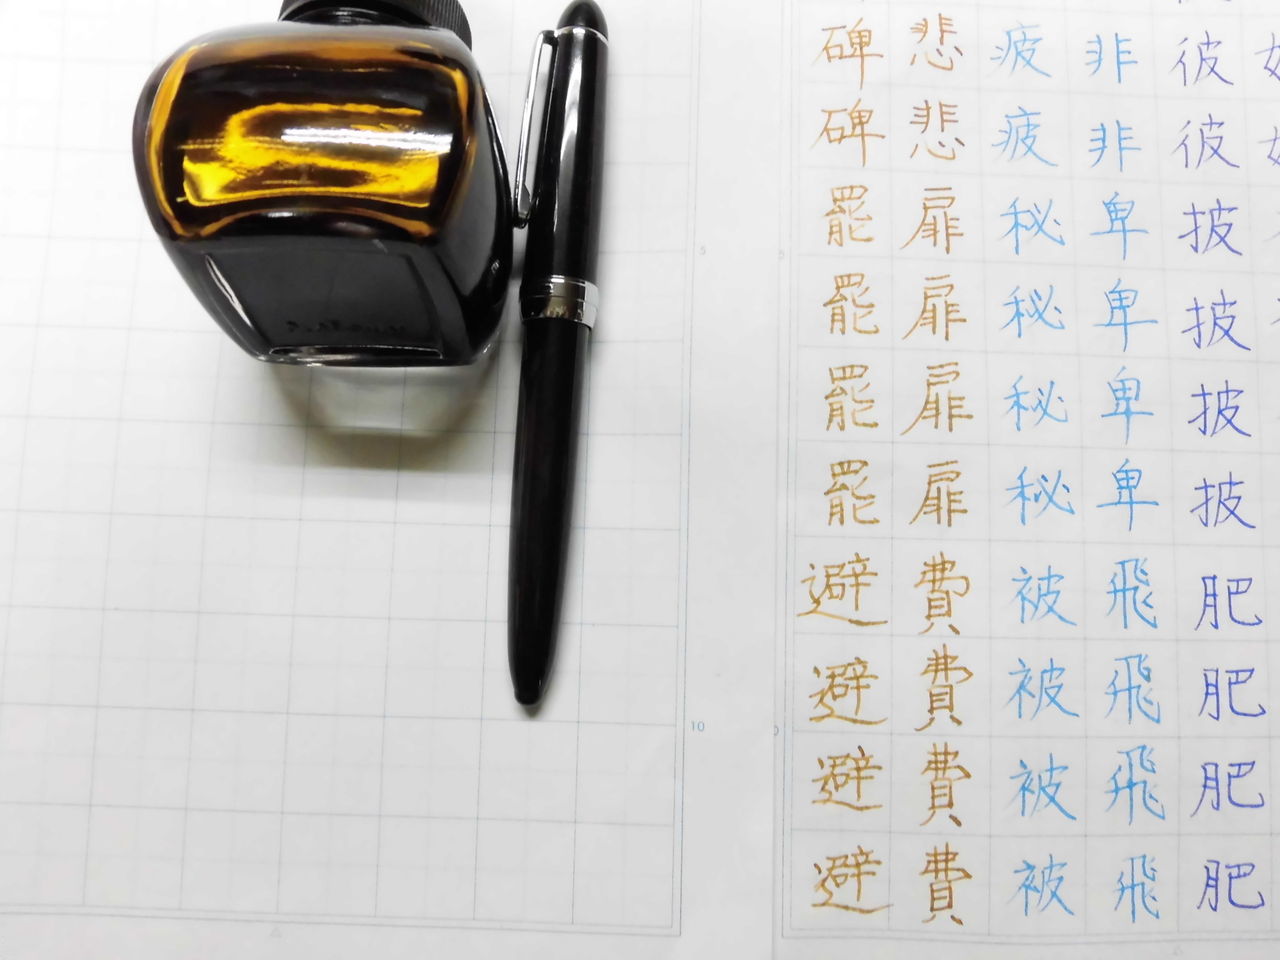 彼彼披披披披肥肥肥肥
非非卑卑卑卑飛飛飛飛
疲疲秘秘秘秘被被被被
悲悲扉扉扉扉費費費費
碑碑罷罷罷罷避避避避
5
5
10